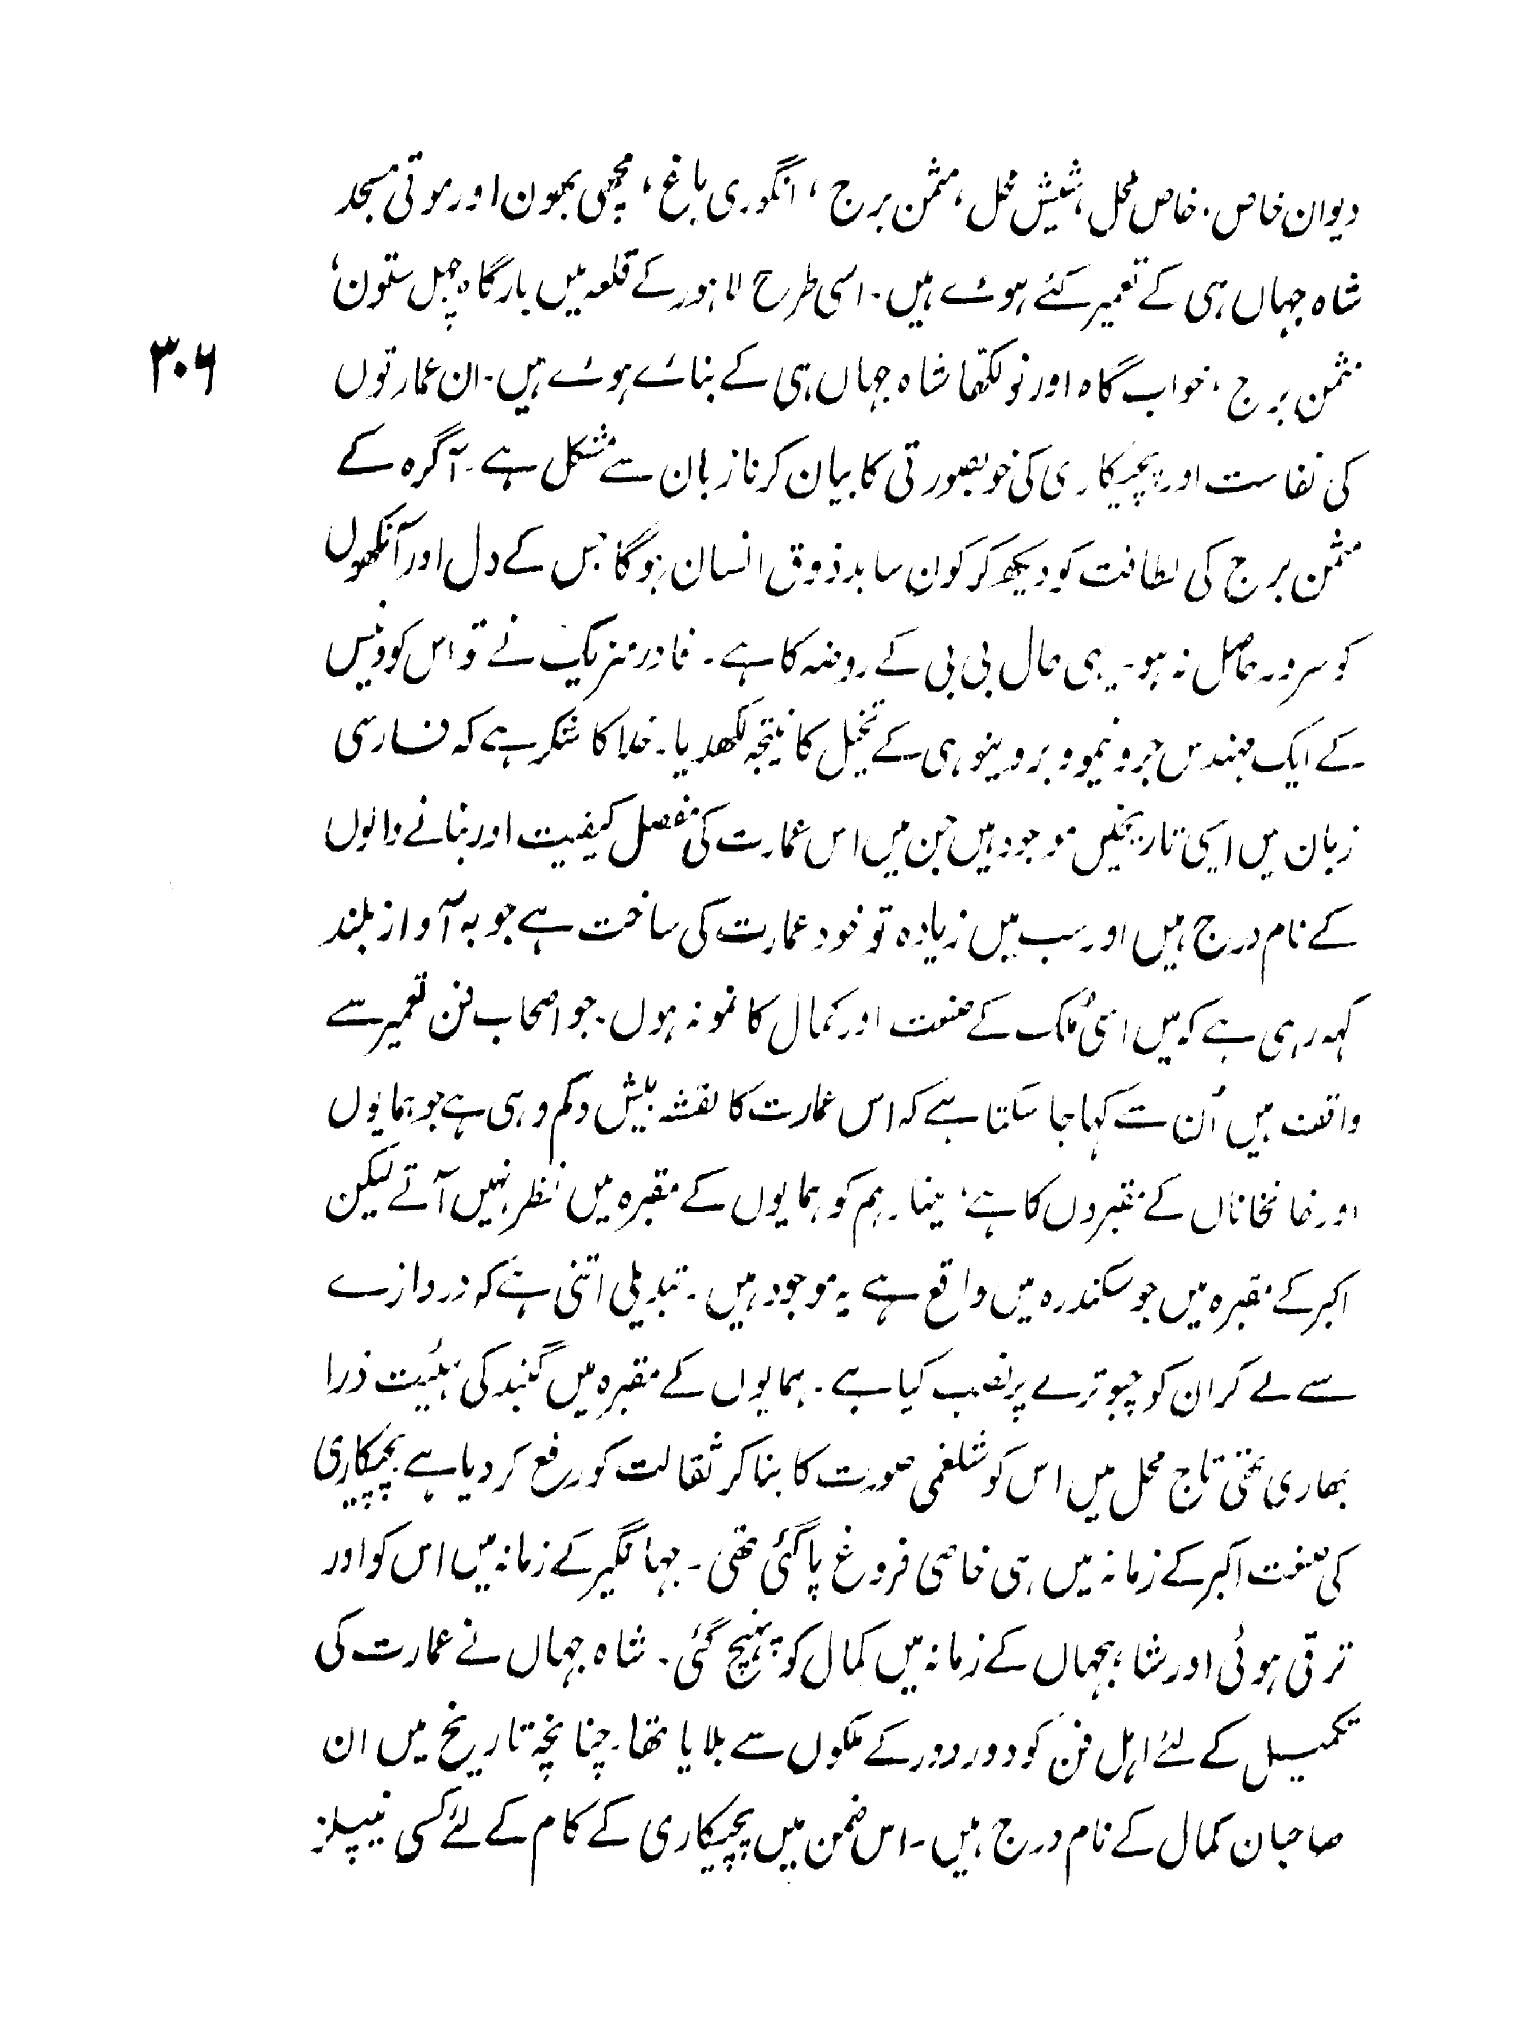 دیوان خاص، خاص محل، شیش محل، مثمن برج، انگوری باغ، مچھی بھون اور موتی مسجد
شاہ جہاں ہی کے تعمیر کئے ہوئے ہیں۔ اسی طرح لاہور کے قلعہ میں بارگاہ چہل ستون،
۳۰۶
مثمن برج، خواب گاہ اور نو لکھا شاہ جہاں ہی کے بنائے ہوئے ہیں۔ ان عمارتوں
کی نفاست اور پچیکاری کی خوبصورتی کا بیان کرنا زبان سے مشکل ہے۔ آگرہ کے
مثمن برج کی لطافت کو دیکھ کر کون سا بدذوق انسان ہوگا جس کے دل اور آنکھوں
کو سرور حاصل نہ ہو۔ یہی حال بی بی کے روضہ کا ہے۔ فادر منریک نے تو اس کو وینس
کے ایک مہندس جرونیمو ویروینو ہی کے تخیل کا نتیجہ لکھدیا۔ خدا کا شکر ہے کہ فارسی
زبان میں ایسی تاریخیں موجود ہیں جن میں اس عمارت کی مفصل کیفیت اور بنانے والوں
کے نام درج ہیں اور سب میں زیادہ تو خود عمارت کی ساخت ہے جو بہ آواز بلند
کہہ رہی ہے کہ میں اسی مُلک کے صنعت اور کمال کا نمونہ ہوں۔ جو اصحاب فن تعمیر سے
واقف ہیں اُن سے کہا جا سکتا ہے کہ اس عمارت کا نقشہ بیش و کم وہی ہے جو ہمایوں
اور خانخاناں کے مقبروں کا ہے، مینار ہم کو ہمایوں کے مقبرہ میں نظر نہیں آتے لیکن
اکبر کے مقبرہ میں جو سکندرہ میں واقع ہے یہ موجود ہیں۔ تبدیلی اتنی ہے کہ دروازے
سے لے کر ان کو چبوترے پر نصب کیا ہے۔ ہمایوں کے مقبرہ میں گنبد کی ہئیت ذرا
بھاری تھی تاج محل میں اس کو شلغمی صورت کا بنا کر ثقالت کو رفع کر دیا ہے پچیکاری
کی صنعت اکبر کے زمانہ میں ہی خاصی فروغ پا گئی تھی۔ جہانگیر کے زمانہ میں اس کو اور
ترقی ہوئی اور شاہجہاں کے زمانہ میں کمال کو پہنچ گئی۔ شاہ جہاں نے عمارت کی
تکمیل کے لئے اہل فن کو دور دور کے ملکوں سے بلایا تھا۔ چنانچہ تاریخ میں ان
صاحبان کمال کے نام درج ہیں۔ اس ضمن میں پچیکاری کے کام کے لئے کسی نیپلز